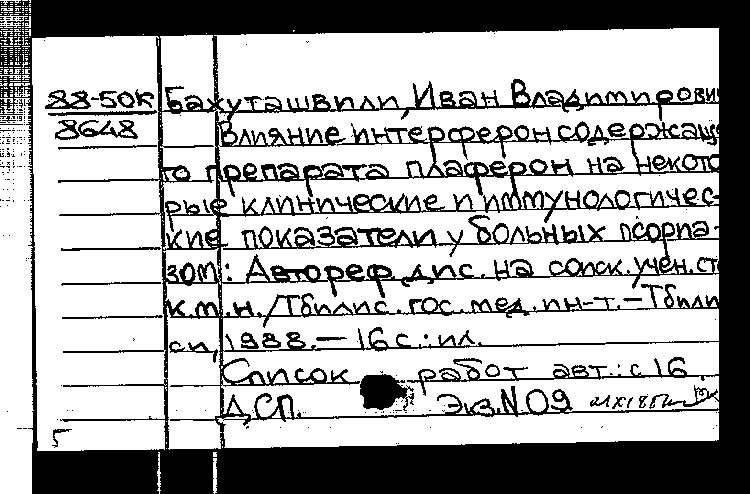 88-50К Бахуташвили, Иван Владимирови
8648 Влияние интерферонсодержаще
го препарата плаферон на некото
рые клинические и иммунологичес-
кие показатели у больных псориа-
зом: Автореф. дис. на соиск. учен. ст
к.м.н./Тбилис. гос. мед. ин-т. – Тбили
си, 1988. – 16 с.: ил.
Список работ авт.: с 16.
ДСП. Экз. N 09
5